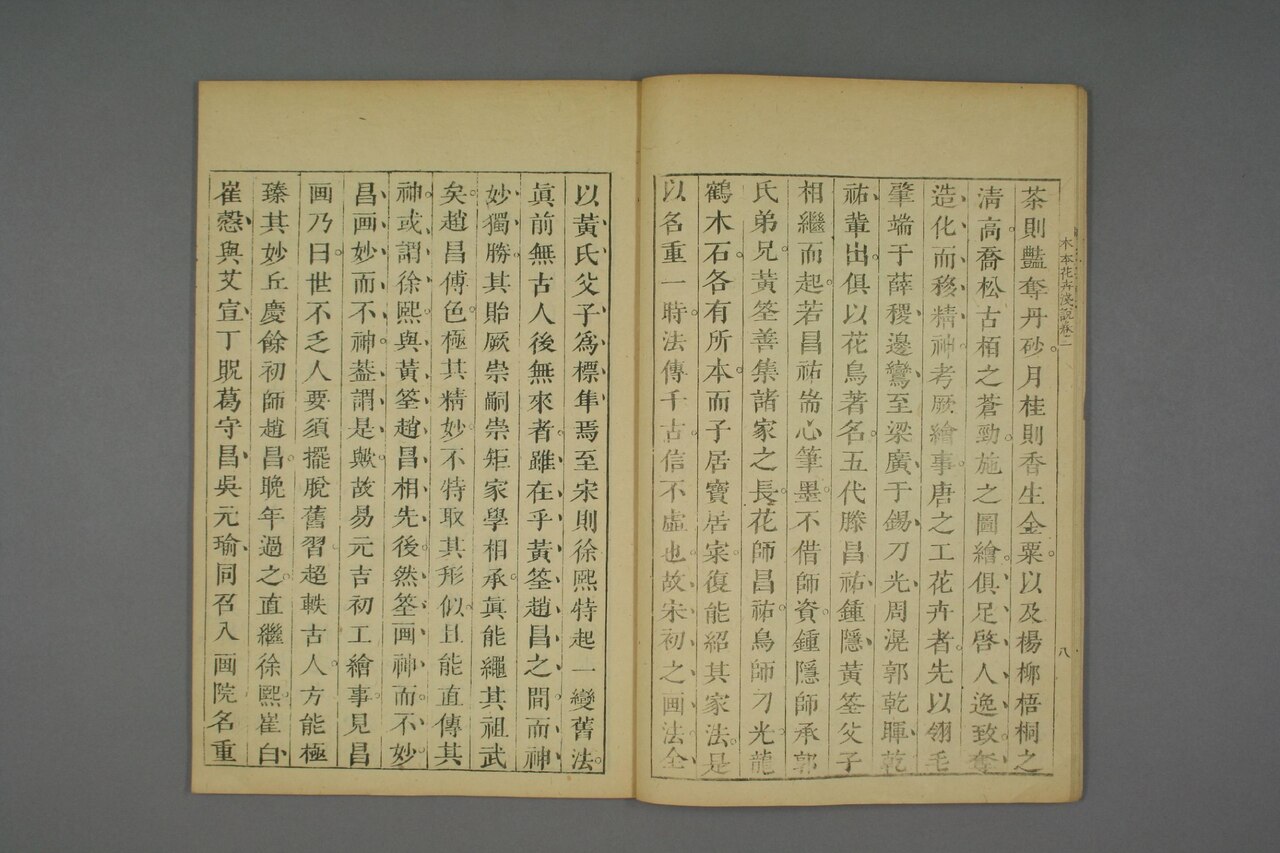 木本花卉淺說卷二
八
茶則豔奪丹砂。月桂則香生金粟。以及楊柳梧桐之
清高。喬松古栢之蒼勁。施之圖繪。俱足啓人逸致。奪
造化而移精神。考厥繪事。唐之工花卉者。先以翎毛
肇端于薛稷、邊鸞、至梁廣、于錫、刀光、周滉、郭乾暉、乾
祐、輩出。俱以花鳥著名。五代滕昌祐、鍾隱、黃筌父子、
相繼而起。若昌祐耑心筆墨。不借師資。鍾隱師承郭
氏弟兄。黃筌善集諸家之長。花師昌祐。鳥師刀光。龍
鶴木石各有所本。而子居寶居寀。復能紹其家法。是
以名重一時。法傳千古。信不虛也。故宋初之画法。全
以黃氏父子爲標隼焉。至宋則徐熙特起。一變舊法。
眞前無古人後無來者。雖在乎黃筌趙昌之間。而神
妙獨勝。其貽厥崇嗣崇矩。家學相承。眞能繩其祖武
矣。趙昌傅色。極其精妙。不特取其形似。且能直傳其
神。或謂徐熙、與黃筌、趙昌、相先後。然筌画神而不妙。
昌画妙而不神。葢謂是歟。故易元吉初工繪事。見昌
画乃曰。世不乏人。要須擺脫舊習。超軼古人。方能極
臻其妙。丘慶餘初師趙昌。晩年過之。直繼徐熙。崔白、
崔慤、與艾宣、丁貺、葛守昌、吳元瑜、同召入画院。名重